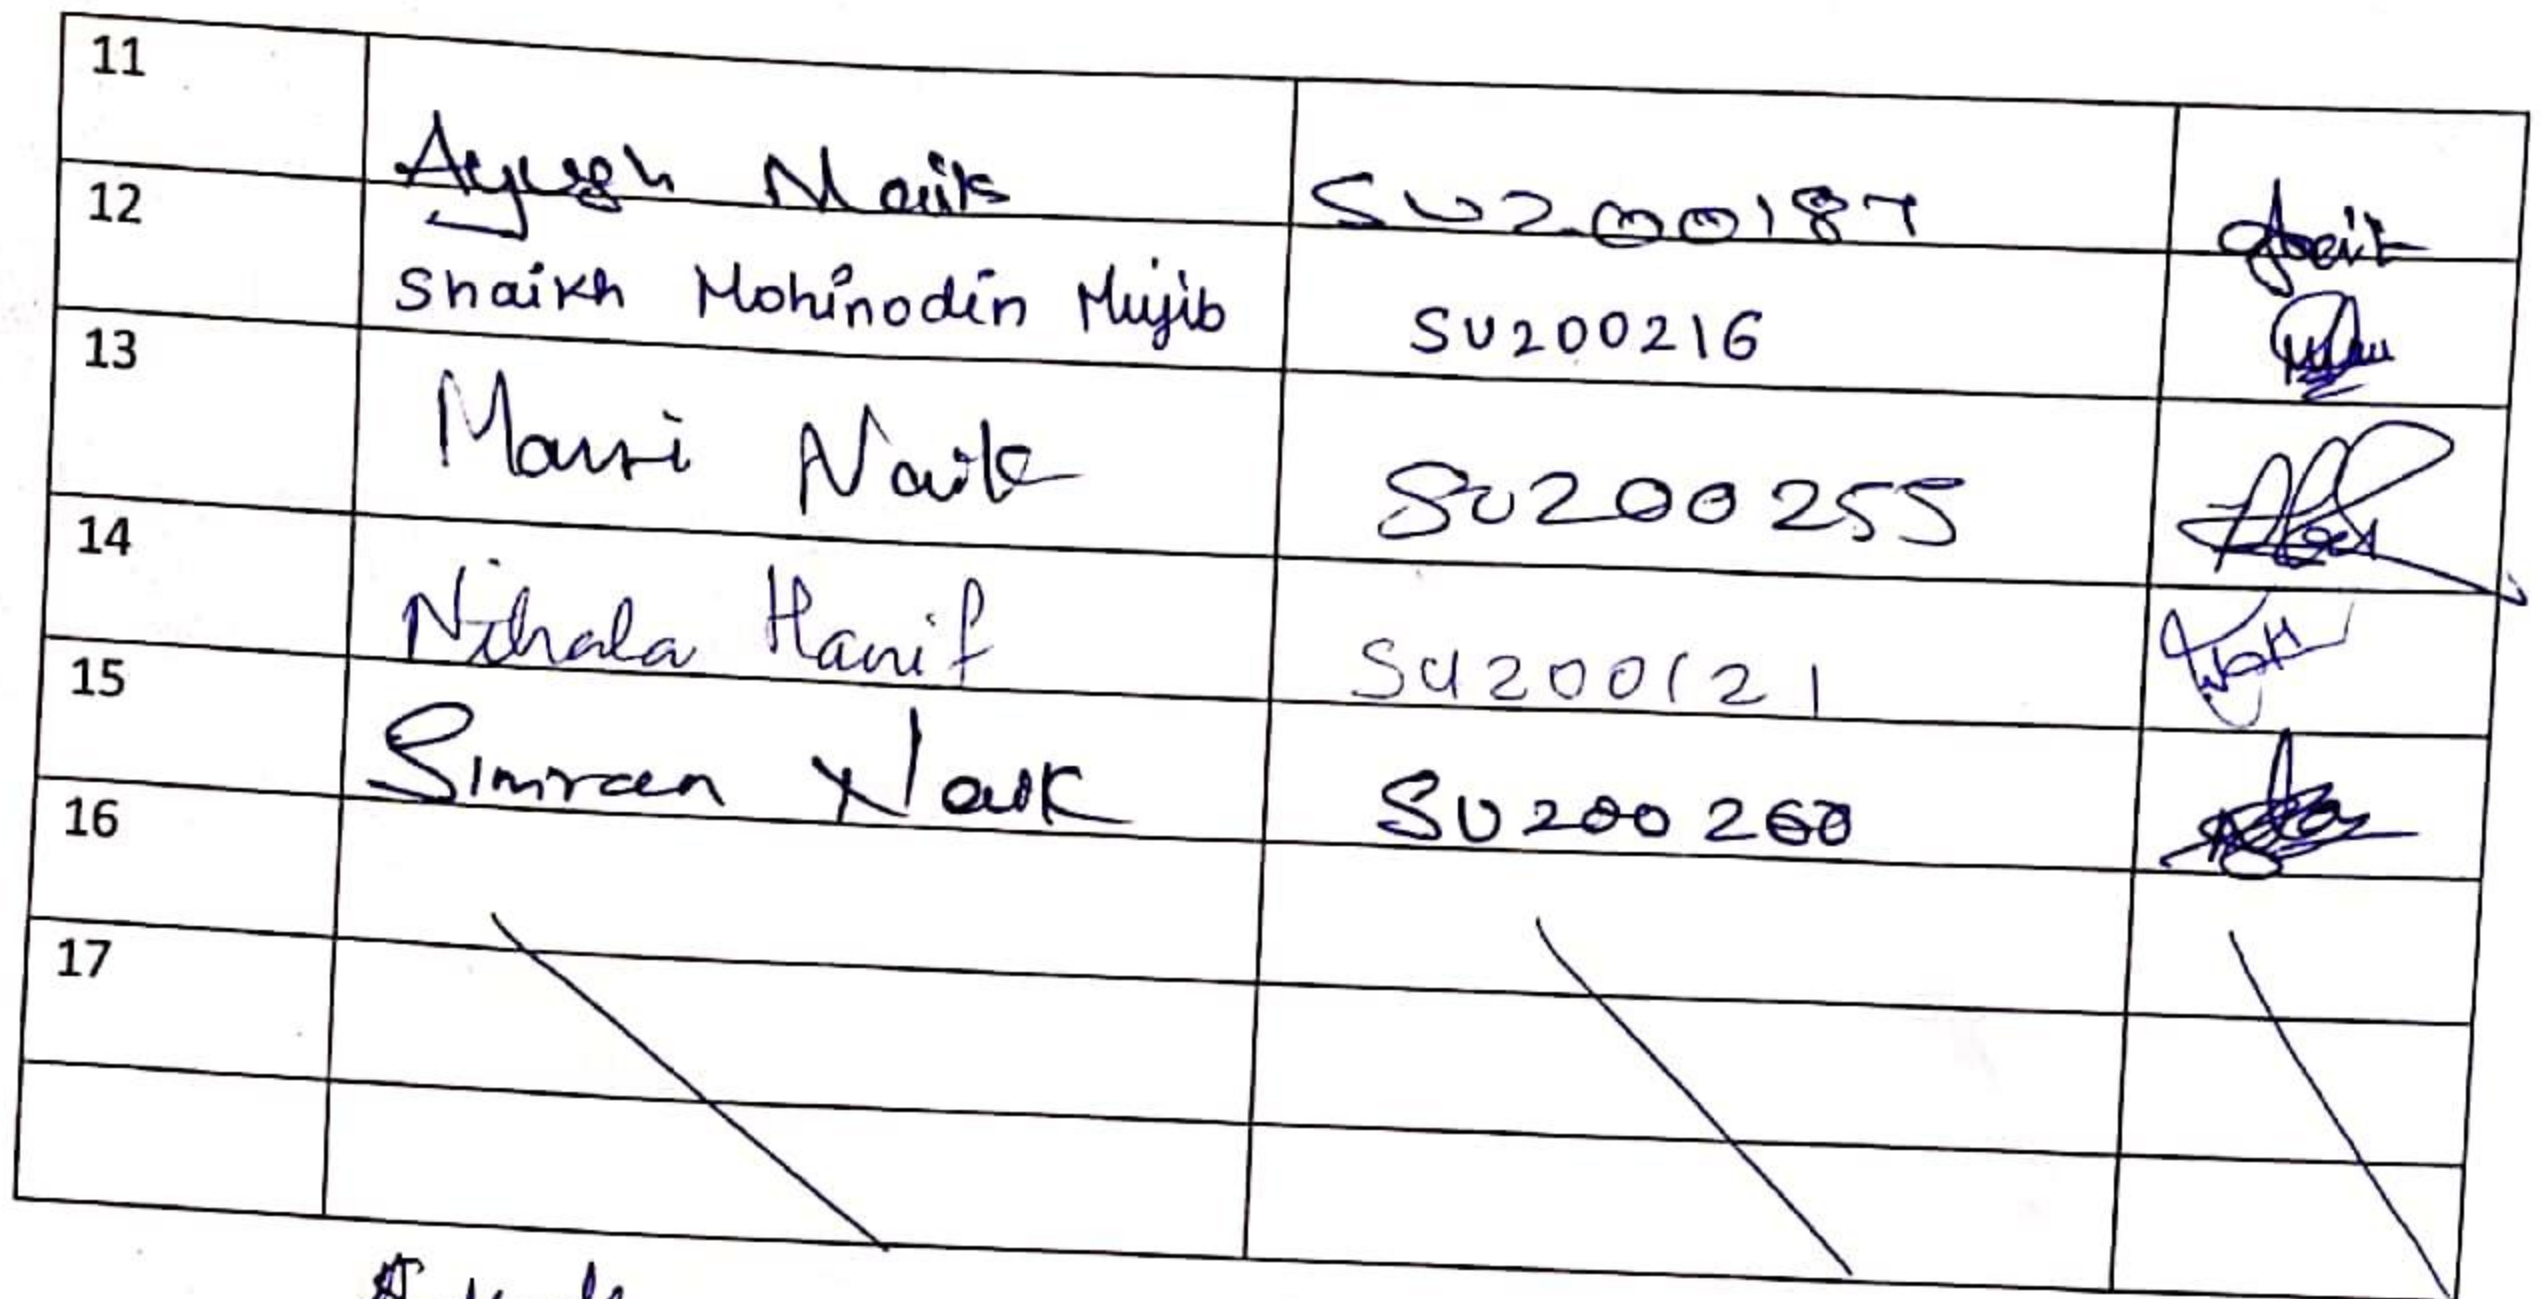 11 Ayush Naik SU200187
12 Shaikh Mohinodin Mujib SU200216
13 Mansi Naik SU200255
14 Nihala Hanif SU200121
15 Simran Naik SU200260
16
17